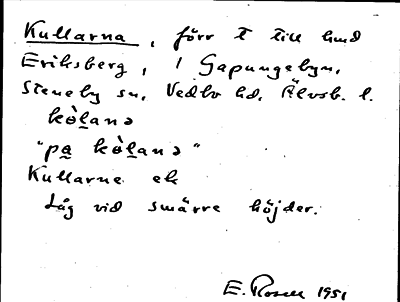 Kullarna, förr t till lund
Eriksberg, i Gapungebyn,
Steneby sn, Vedbo hd, Älvsb. l.
kò̱lanə
"pa̱ kò̱lanə"
Kullarna ek
Låg vid smärre höjder.
E. Rosell 1951